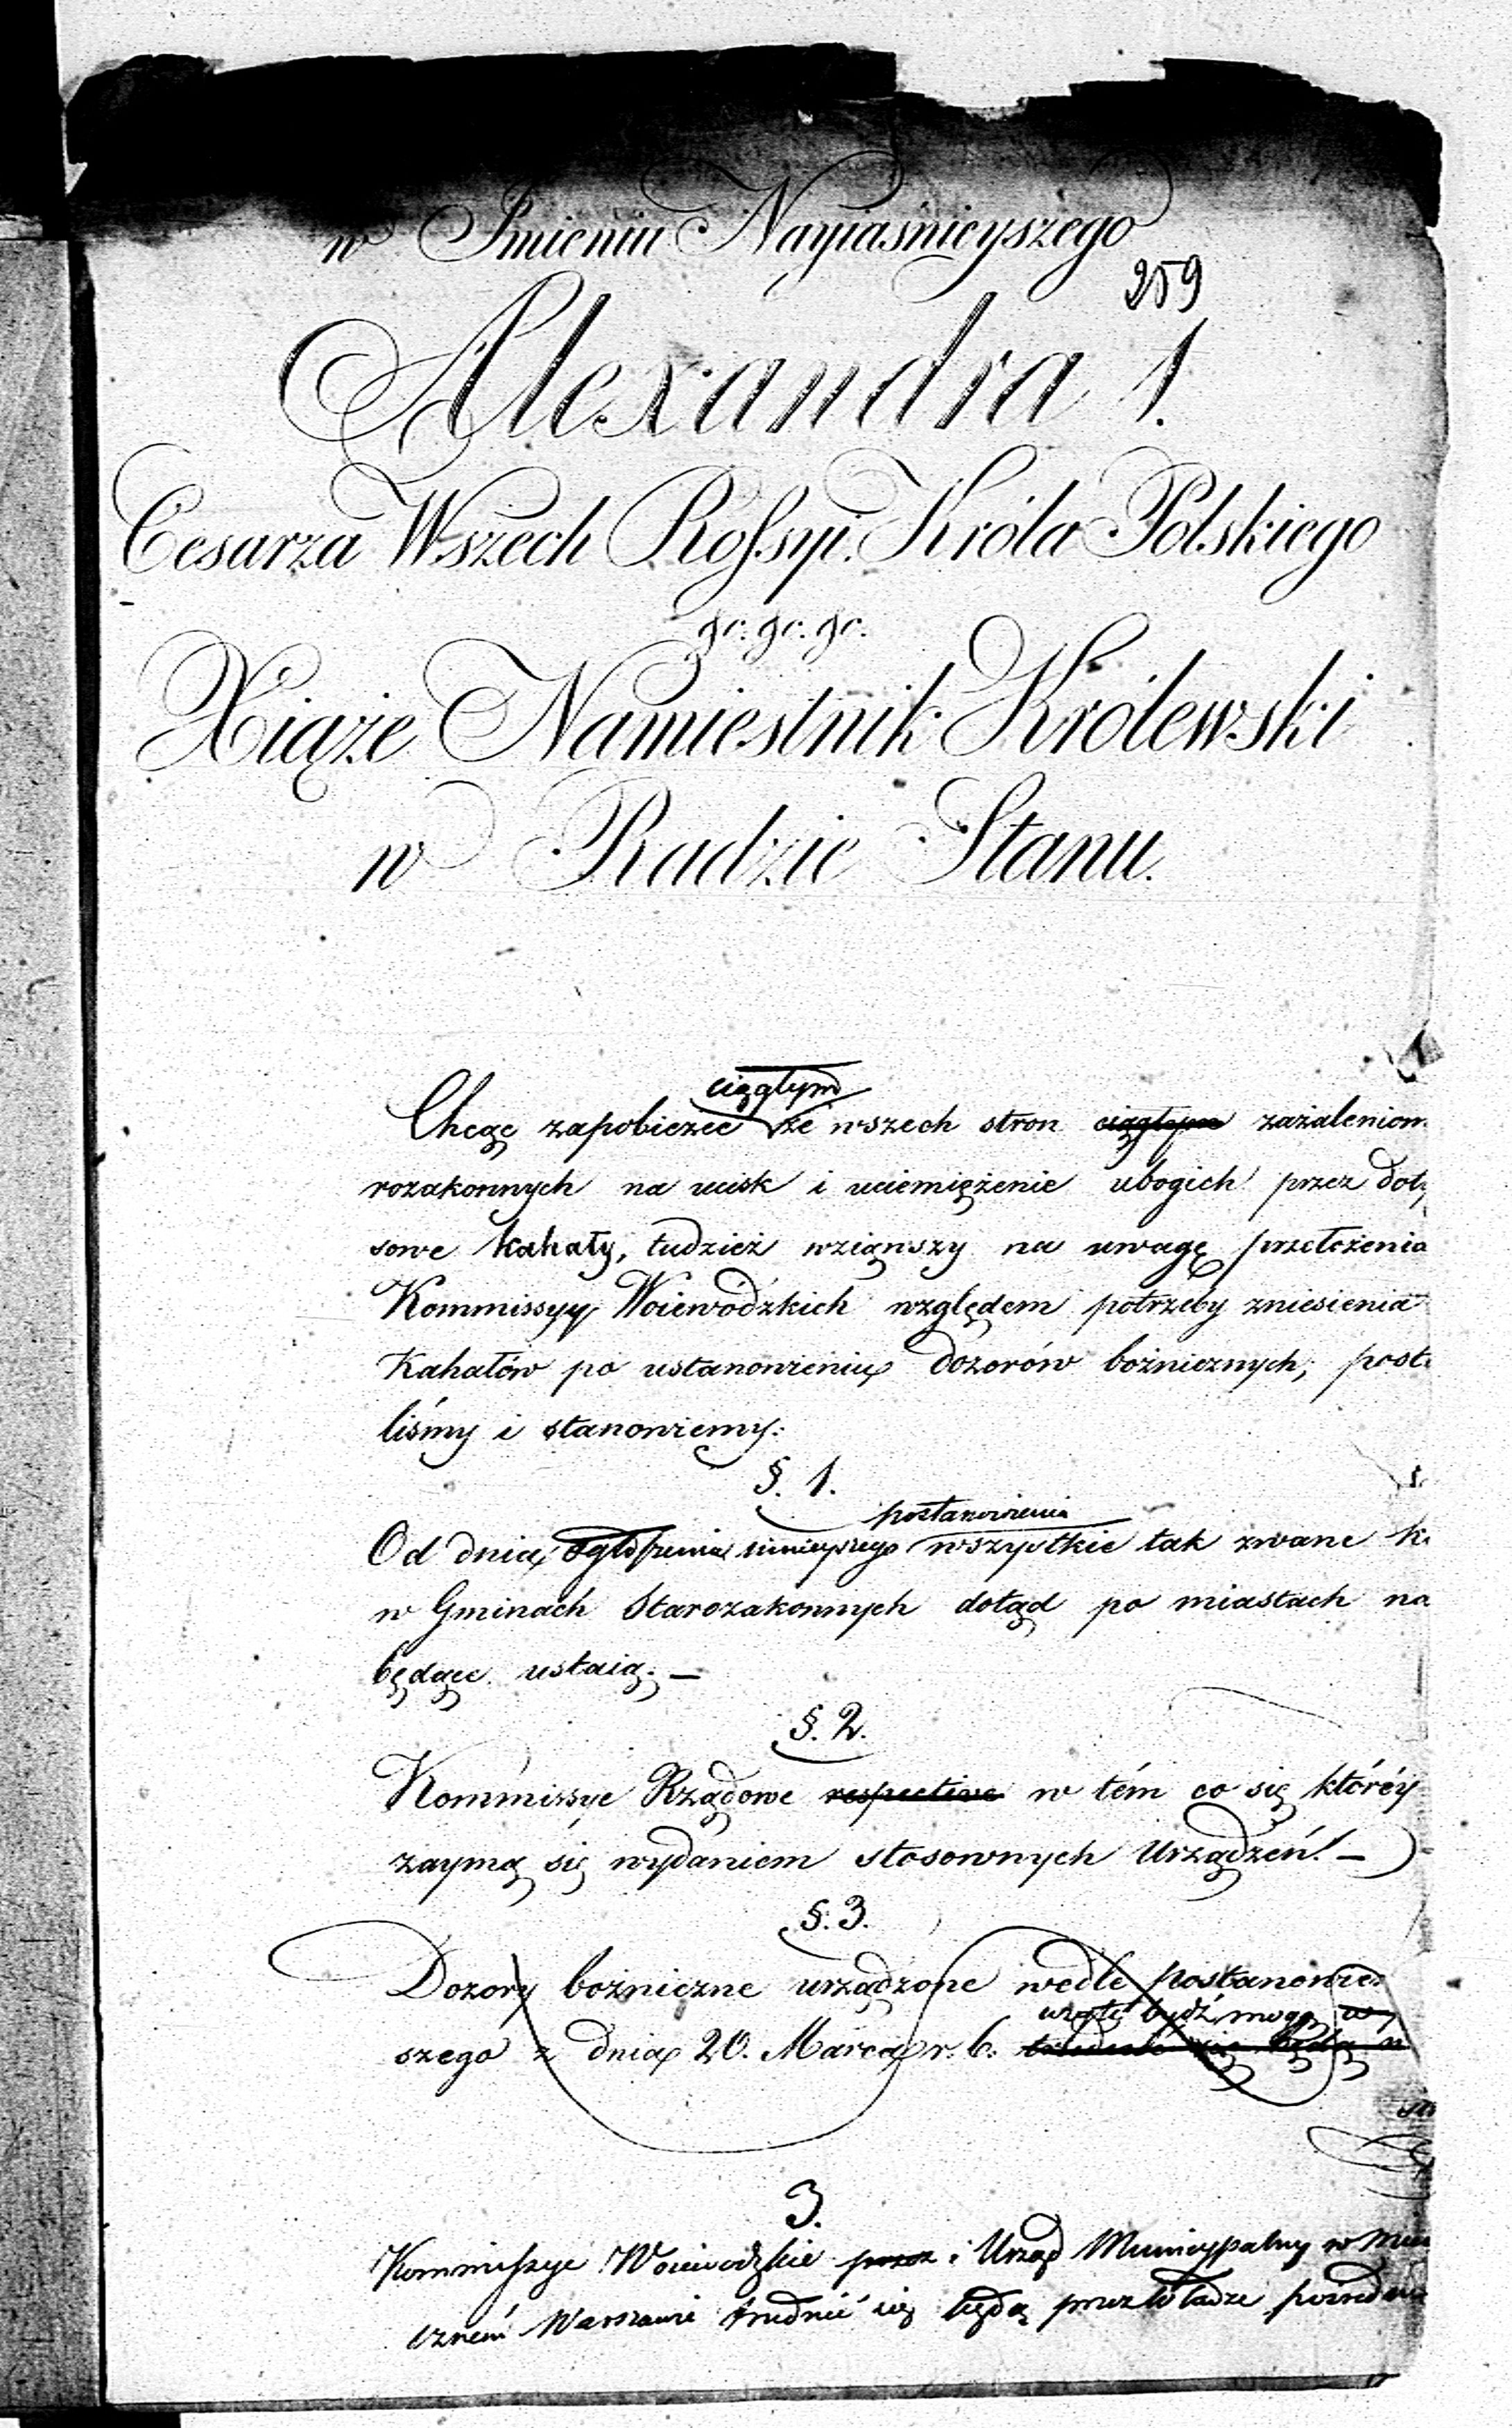 w Imieniu Nayiaśnieyszego
259
Alexandra 1.
Cesarza Wszech Rossyi. Króla Polskiego
&c. &c. &c.
Xiąże Namiestnik Królewski
w Radzie Stanu.
ciągłym
Chcąc zapobieżec ze wszech stron ciągłym zażaleniom
rozakonnych na ucisk i uciemiężenie ubogich przez dot
sowe kahały, tudzież wziąwszy na uwagę przełożenia
Kommissyy Woiewódzkich względem potrzeby zniesienia
Kahałów po ustanowieniu dozorów bożniczych, post
liśmy i stanowiemy:
§. 1.
postanowienia
Od dnia ogłoszenia ninieyszego wszystkie tak zwane k
w Gminach Starozakonnych dotąd po miastach na
będące ustaią. —
§. 2.
Kommissye Rządowe respective w tém co się któréy
zaymą się wydaniem stosownych Urządzeń. —
§. 3.
Dozory bożnicze urządzone wedle postanowie
użyte bydź mogą w
szego z dnia 20. Marca r. b. trudnić się będą w
3.
Kommissye Woiewodzkie przez i Urząd Municypalny w Mie
cznem Warszawie trudnić się będą przez Władze pośredn